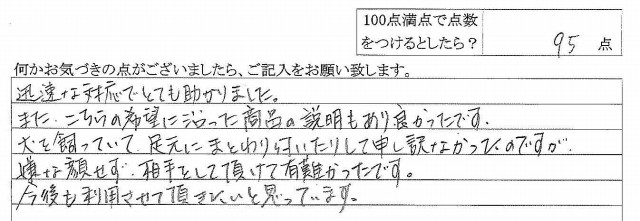 100点満点で点数
をつけるとしたら？
95 点
何かお気づきの点がございましたら、ご記入をお願い致します。
迅速な対応でとても助かりました。
また、こちらの希望に沿った商品の説明もあり良かったです。
犬を飼っていて、足元にまとわり付いたりして申し訳なかったのですが、
嫌な顔せず、相手をして頂けて有難かったです。
今後も利用させて頂きたいと思っています。